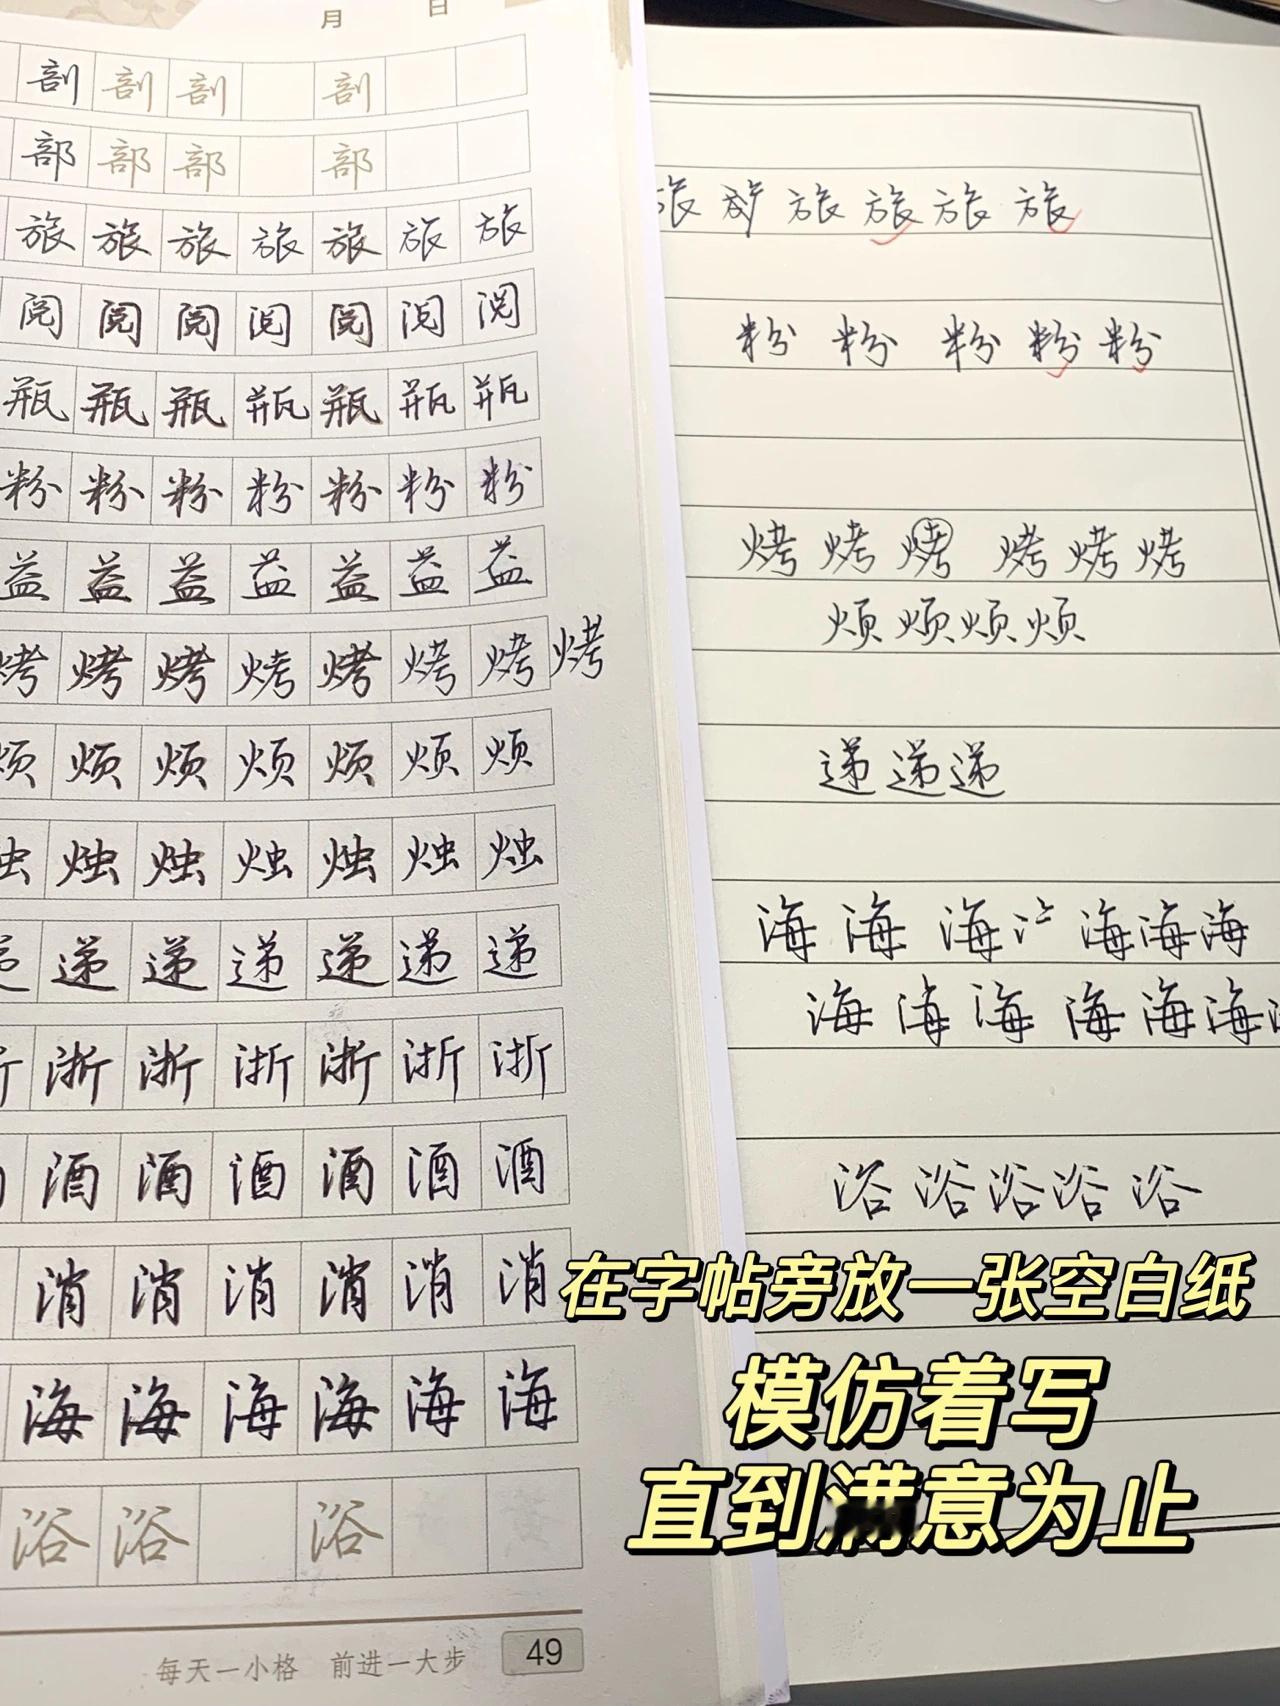 月 日
剖 剖 剖 剖
部 部 部 部
旅 旅 旅 旅 旅 旅 旅
阅 阅 阅 阅 阅 阅 阅
瓶 瓶 瓶 瓶 瓶 瓶 瓶
粉 粉 粉 粉 粉 粉 粉
益 益 益 益 益 益 益
烤 烤 烤 烤 烤 烤 烤 烤
烦 烦 烦 烦 烦 烦 烦
烛 烛 烛 烛 烛 烛 烛
递 递 递 递 递 递 递
浙 浙 浙 浙 浙 浙 浙
酒 酒 酒 酒 酒 酒
消 消 消 消 消 消
海 海 海 海 海 海
浴 浴 浴
每天一小格 前进一大步
49
旅 旅 旅 旅 旅
粉 粉 粉 粉 粉
烤 烤 烤 烤 烤 烤
烦 烦 烦 烦
递 递 递
海 海 海 海 海 海
海 海 海 海 海 海
浴 浴 浴 浴 浴
在字帖旁放一张空白纸
模仿着写
直到满意为止